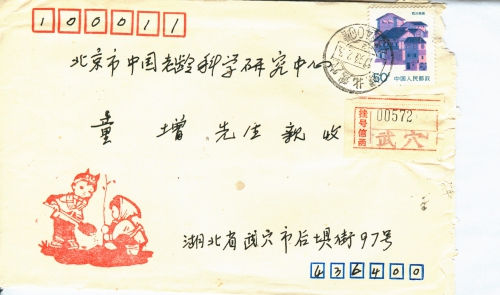 100011
北京市中国老龄科学研究中心
童 增 先生 亲 收
50分 中国人民邮政
挂号信函
00572
武穴
湖北省武穴市后垻街97号
436400